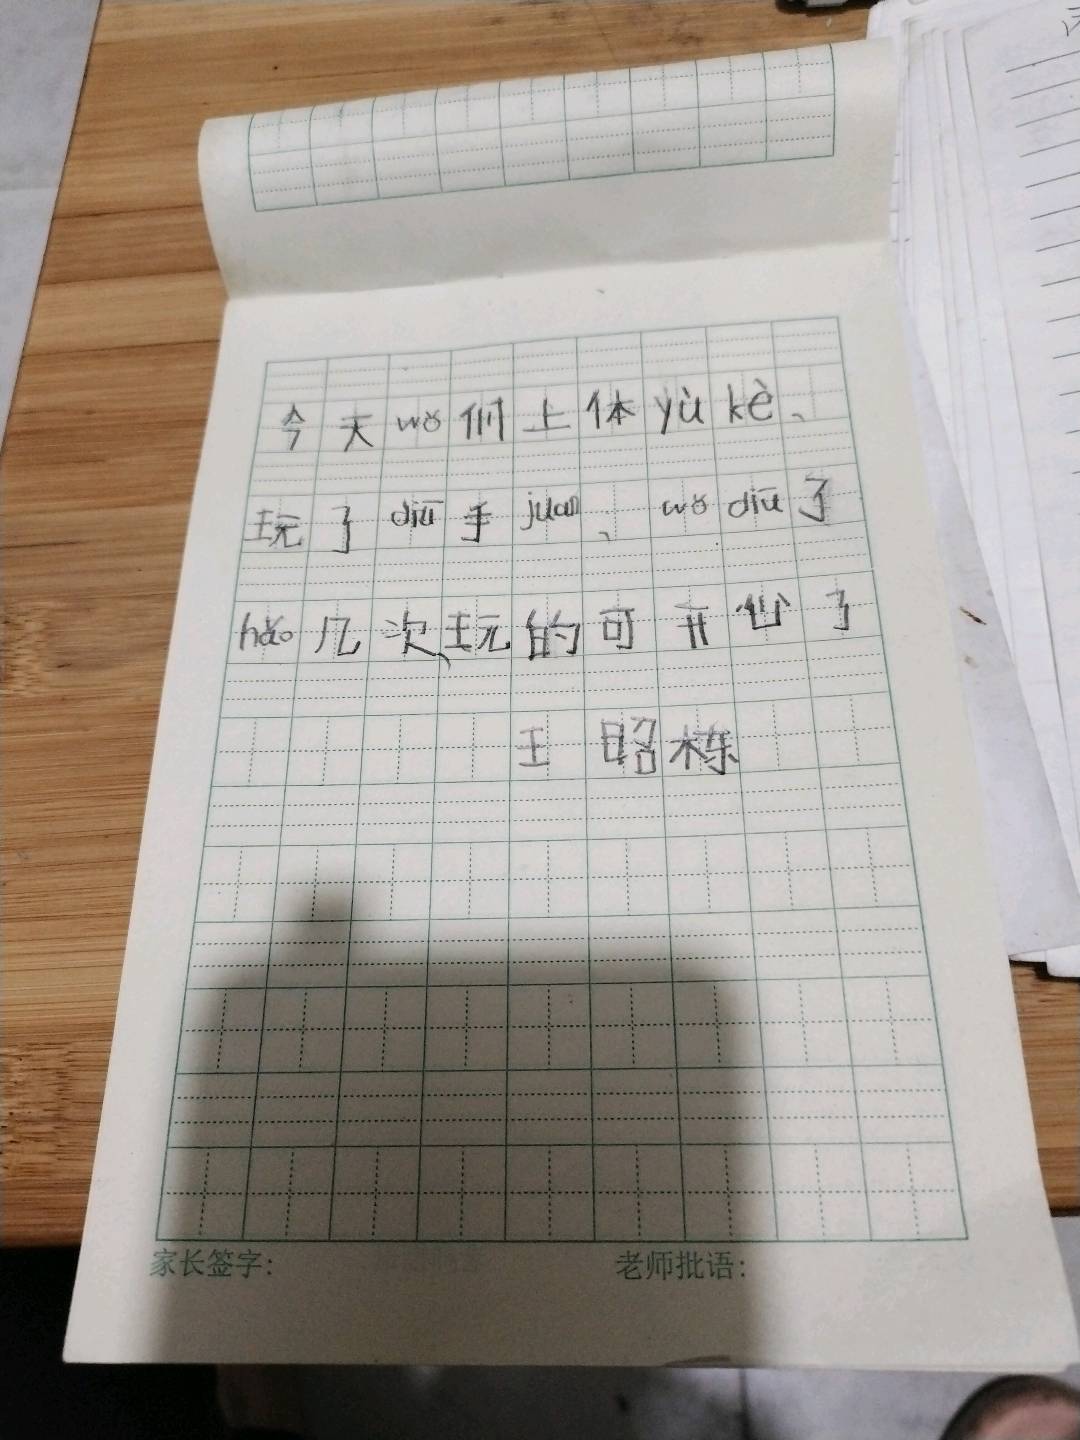 今天wǒ们上体yù kè、
玩了diū手juan、wǒ diū了
hǎo几次、玩的可开心了
王昭栋
家长签字: 老师批语: